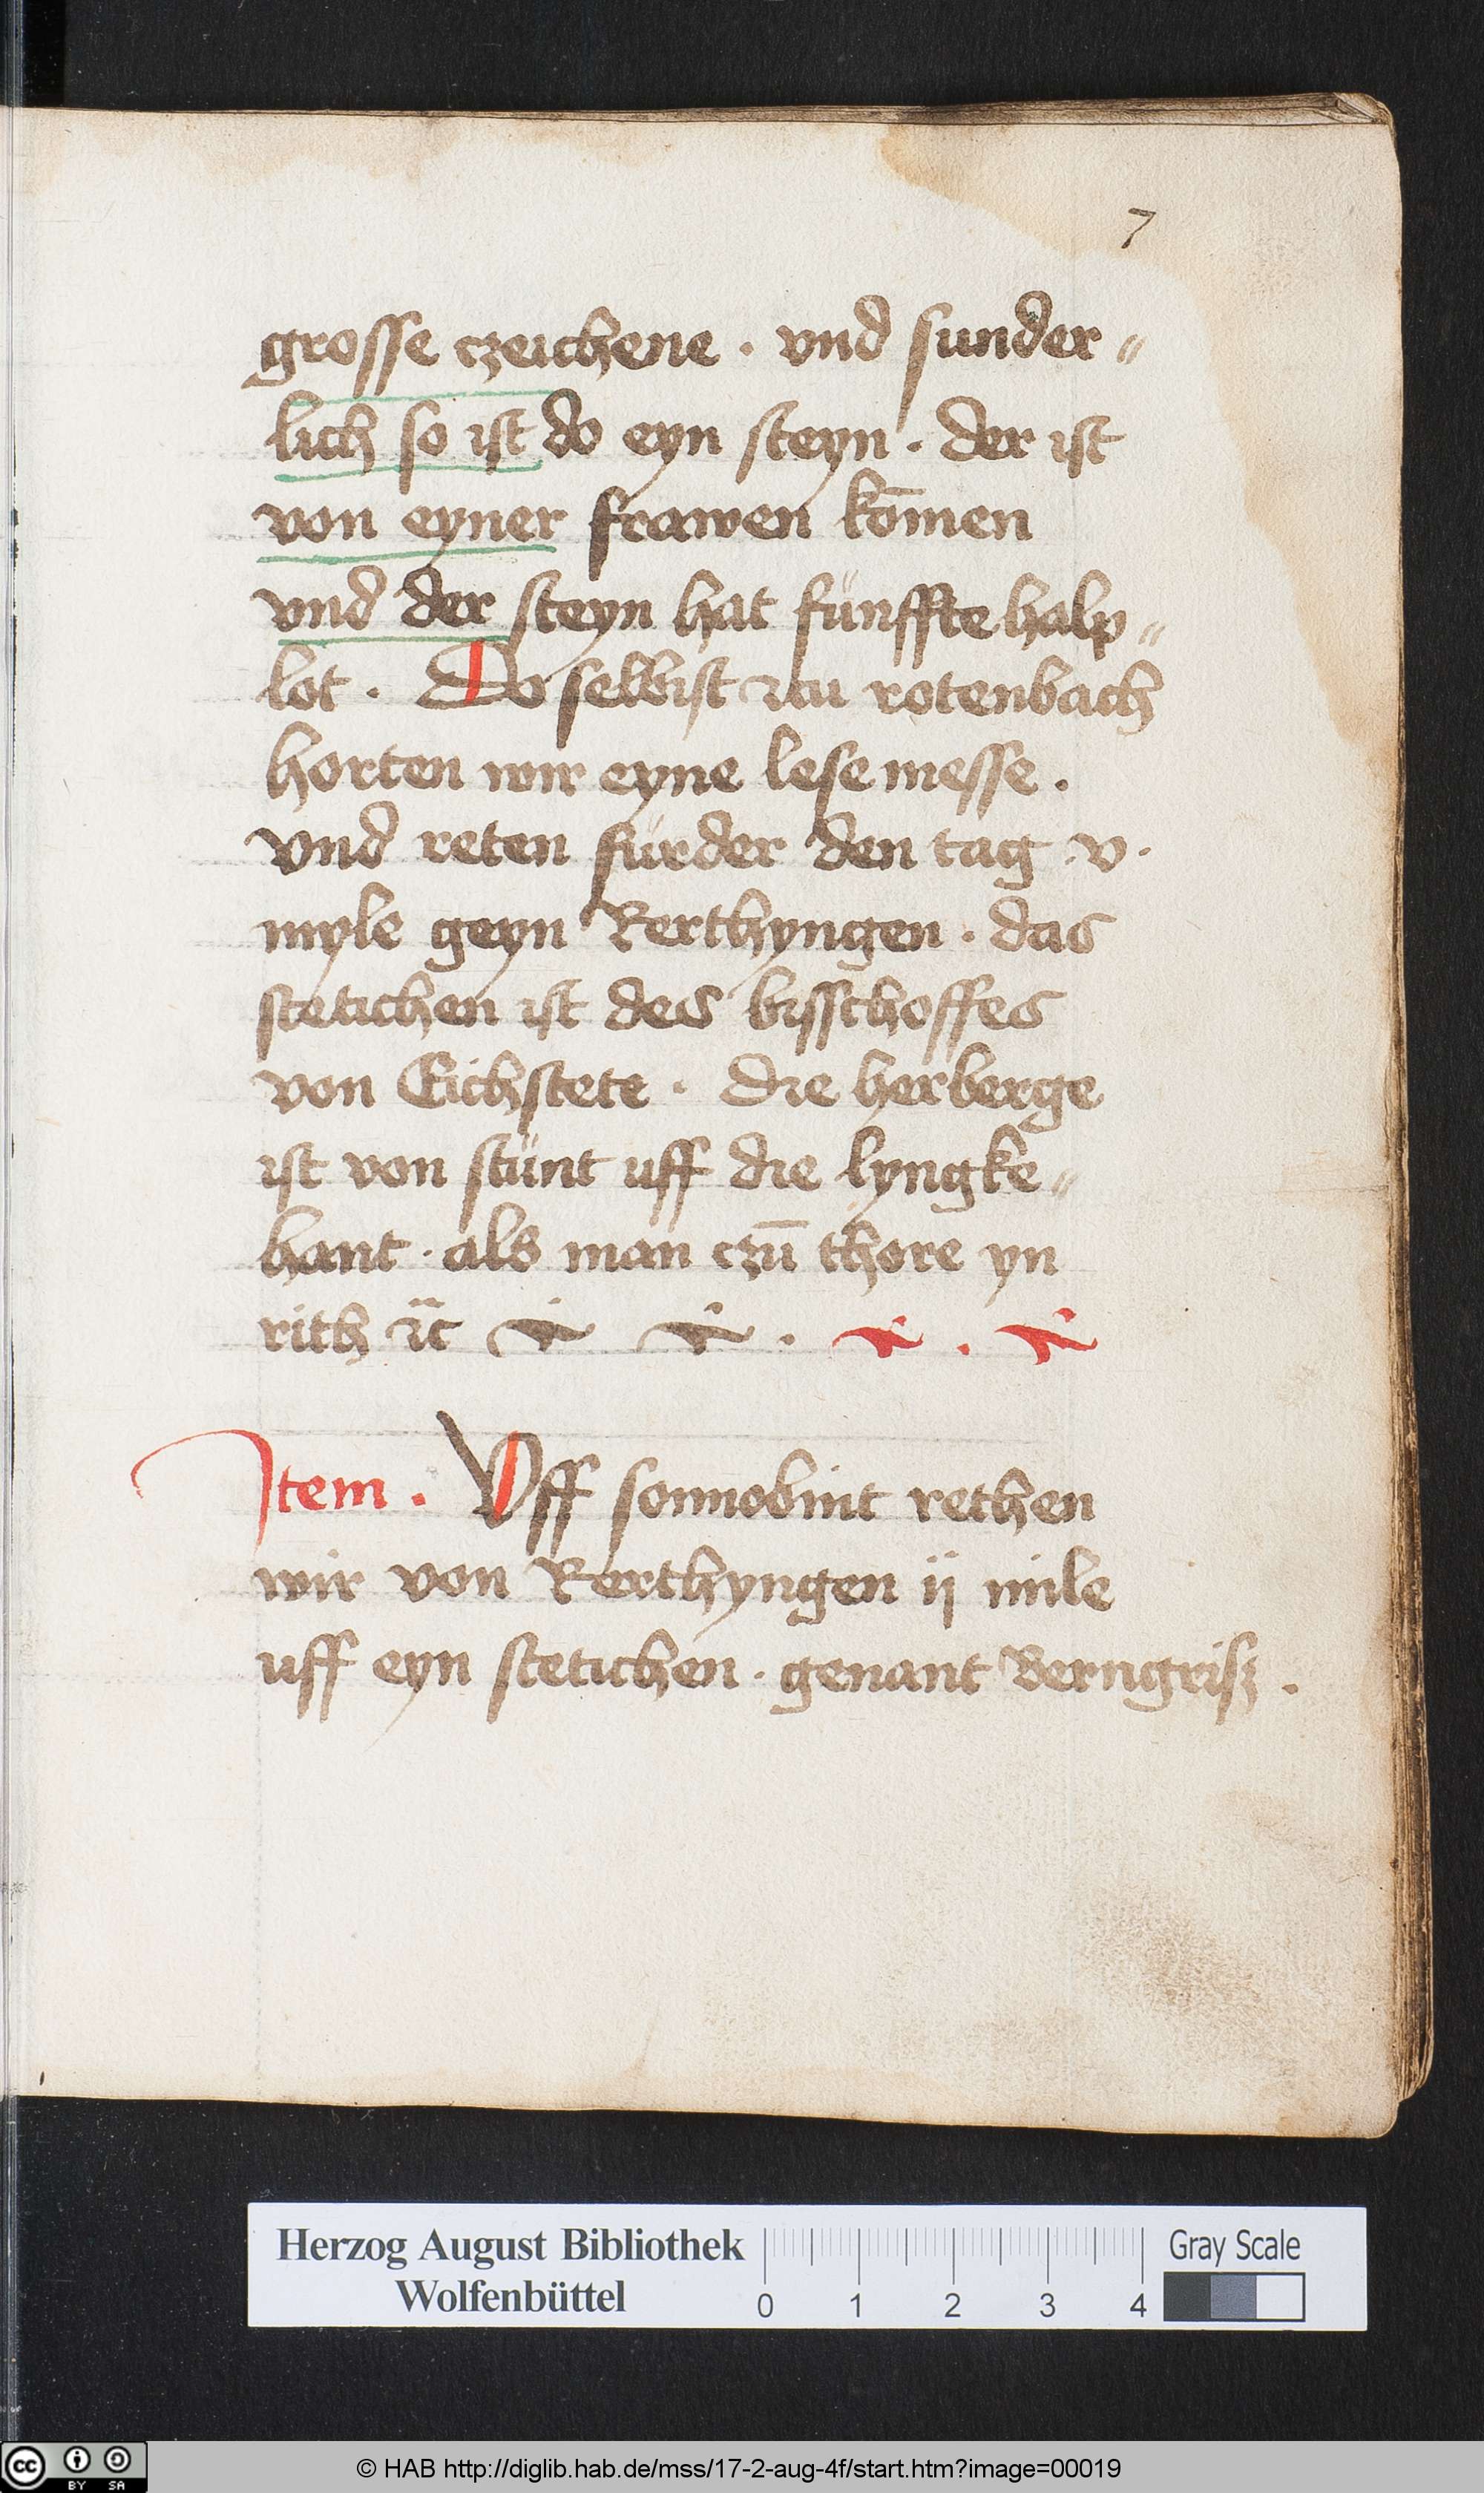 7
grosse czeichene · vnd sunder〃
lich so ist do eyn steyn · der ist
von eyner frawen kōmen
vnd der steyn hat fünffte halp〃
lot · Do selbist zcu rotenbach
horten wir eyne lese messe ·
vnd reten fürder den tag · v ·
myle geyn Kerthyngen · das
stetichen ist des bisschoffes
von Eichstete · die herberge
ist von stünt uff die lyngke〃
hant · als man czū thore yn
rith ꝛc
Item · Vff sonnobint rethen
wir von Kerthyngen ij mile
uff eyn stetichen · genant Berngrisz ·
Herzog August Bibliothek
Wolfenbüttel
0 1 2 3 4
Gray Scale
cc BY SA
© HAB http://diglib.hab.de/mss/17-2-aug-4f/start.htm?image=00019